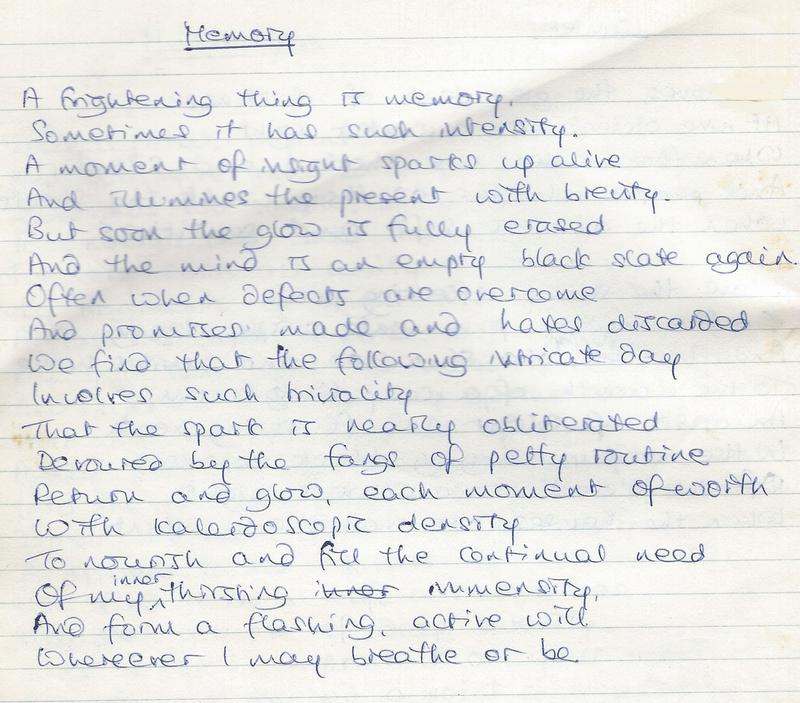 Memory
A frightening thing is memory.
Sometimes it has such intensity.
A moment of insight sparks up alive
And illumines the present with brevity.
But soon the glow is fully erased
And the mind is an empty black slate again.
Often when defects are overcome
And promises made and hates discarded
We find that the following intricate day
Involves such triviality
That the spark is nearly obliterated
Devoured by the fangs of petty routine
Return and glow, each moment of worth
With kaleidoscopic density
To nourish and fill the continual need
Of my inner thirsting inner immensity,
And form a flashing, active will
Whereever I may breathe or be